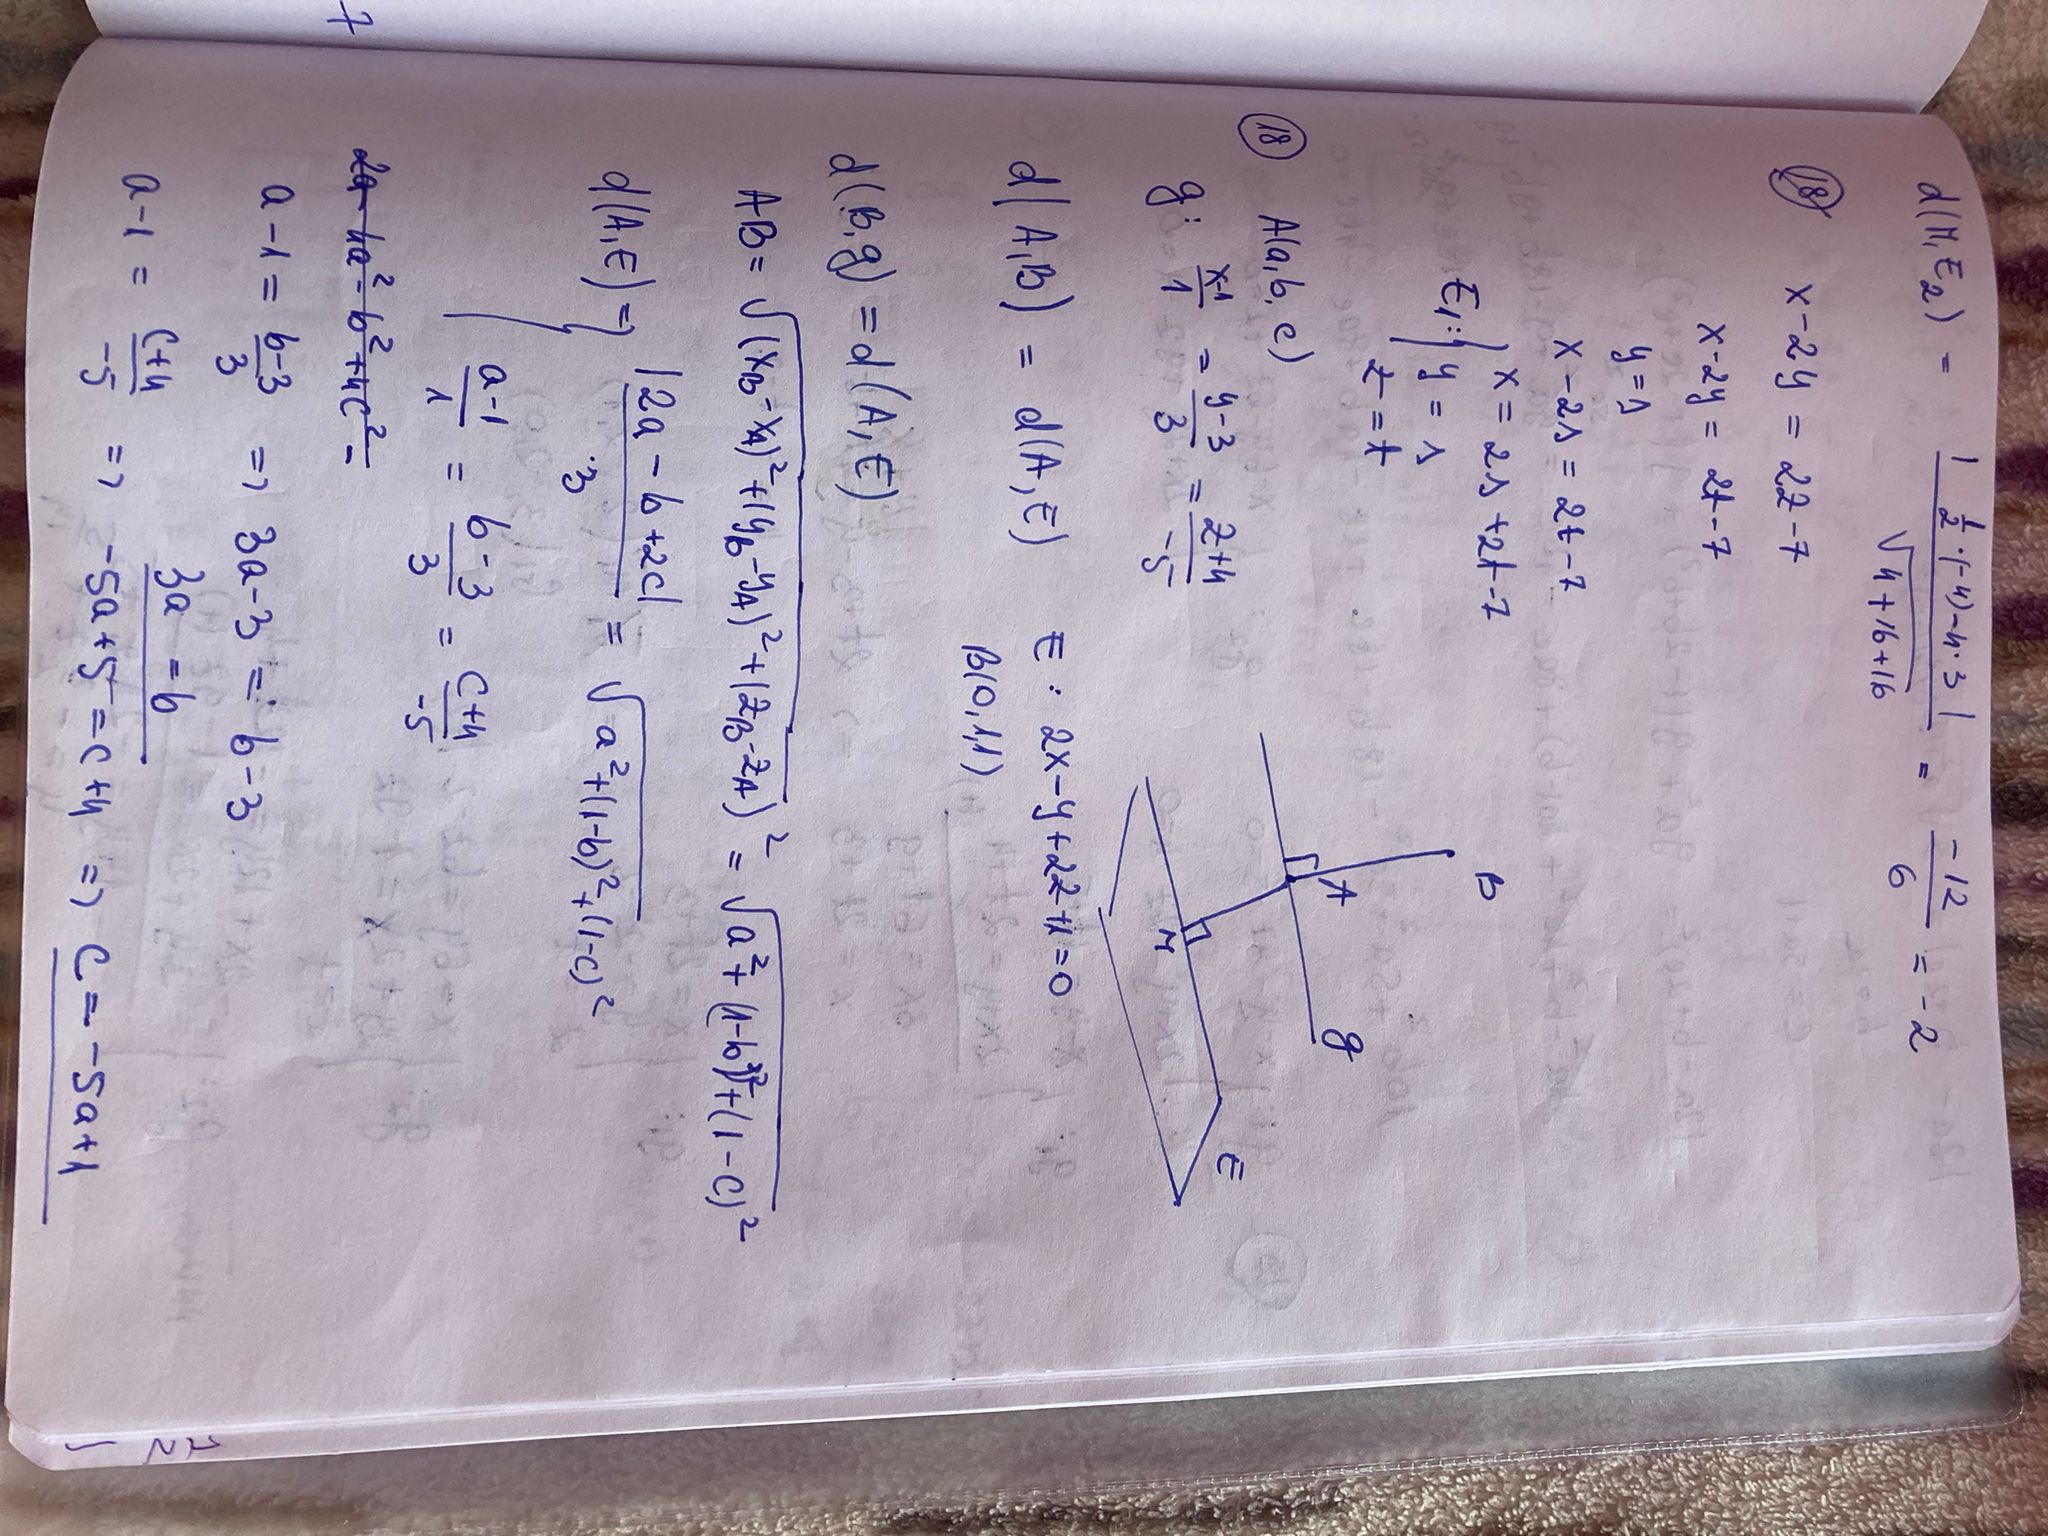 d(M,E₂) = | ½·(-4)-4·3 | / √4+16+16 = -12/6 = -2
18 x-2y = 2z-7
x-2y = 2t-7
y=s
x-2s = 2t-7
E₁: x = 2s+2t-7
y = s
z = t
B
A g
E
M
18 A(a,b,c)
g: x-1/1 = y-3/3 = z+4/-5
d(A,B) = d(A,E) E: 2x-y+2z+1=0
B(0,1,1)
d(B,g) = d(A,E)
AB = √(x_B-x_A)²+(y_B-y_A)²+(z_B-z_A)² = √a²+(1-b)²+(1-c)²
d(A,E) => |2a-b+2c|/3 = √a²+(1-b)²+(1-c)²
a-1/1 = b-3/3 = c+4/-5
2a 4a²-b²+4c²-
a-1 = b-3/3 => 3a-3 = b-3
3a = b
a-1 = c+4/-5 => -5a+5 = c+4 => c = -5a+1
7